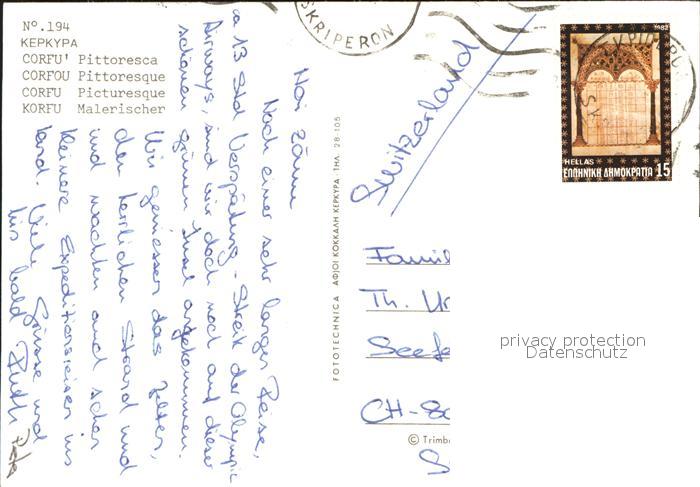 No.194
ΚΕΡΚΥΡΑ
CORFU' Pittoresca
CORFOU Pittoresque
CORFU Picturesque
KORFU Malerischer
SKRIPERON
Hoi zäme
Nach einer sehr langen Reise,
ca 13 Std Verspätung - Streik der Olympic
Airways, sind wir doch noch auf dieser
schönen grünen Insel angekommen.
Wir geniessen das Zelten,
den herrlichen Strand und
und machten auch schon
kleinere Expeditionsreisen ins
Land. Viele Grüsse und
bis bald Ruth
FOTOTECHNICA ΑΦΙΟΙ ΚΟΚΚΑΛΗ ΚΕΡΚΥΡΑ · ΤΗΛ. 28-105
Switzerland
1982
HELLAS
ΕΛΛΗΝΙΚΗ ΔΗΜΟΚΡΑΤΙΑ 15
Famil
Th. Ur
Seefe
CH-80
© Trimb
privacy protection
Datenschutz